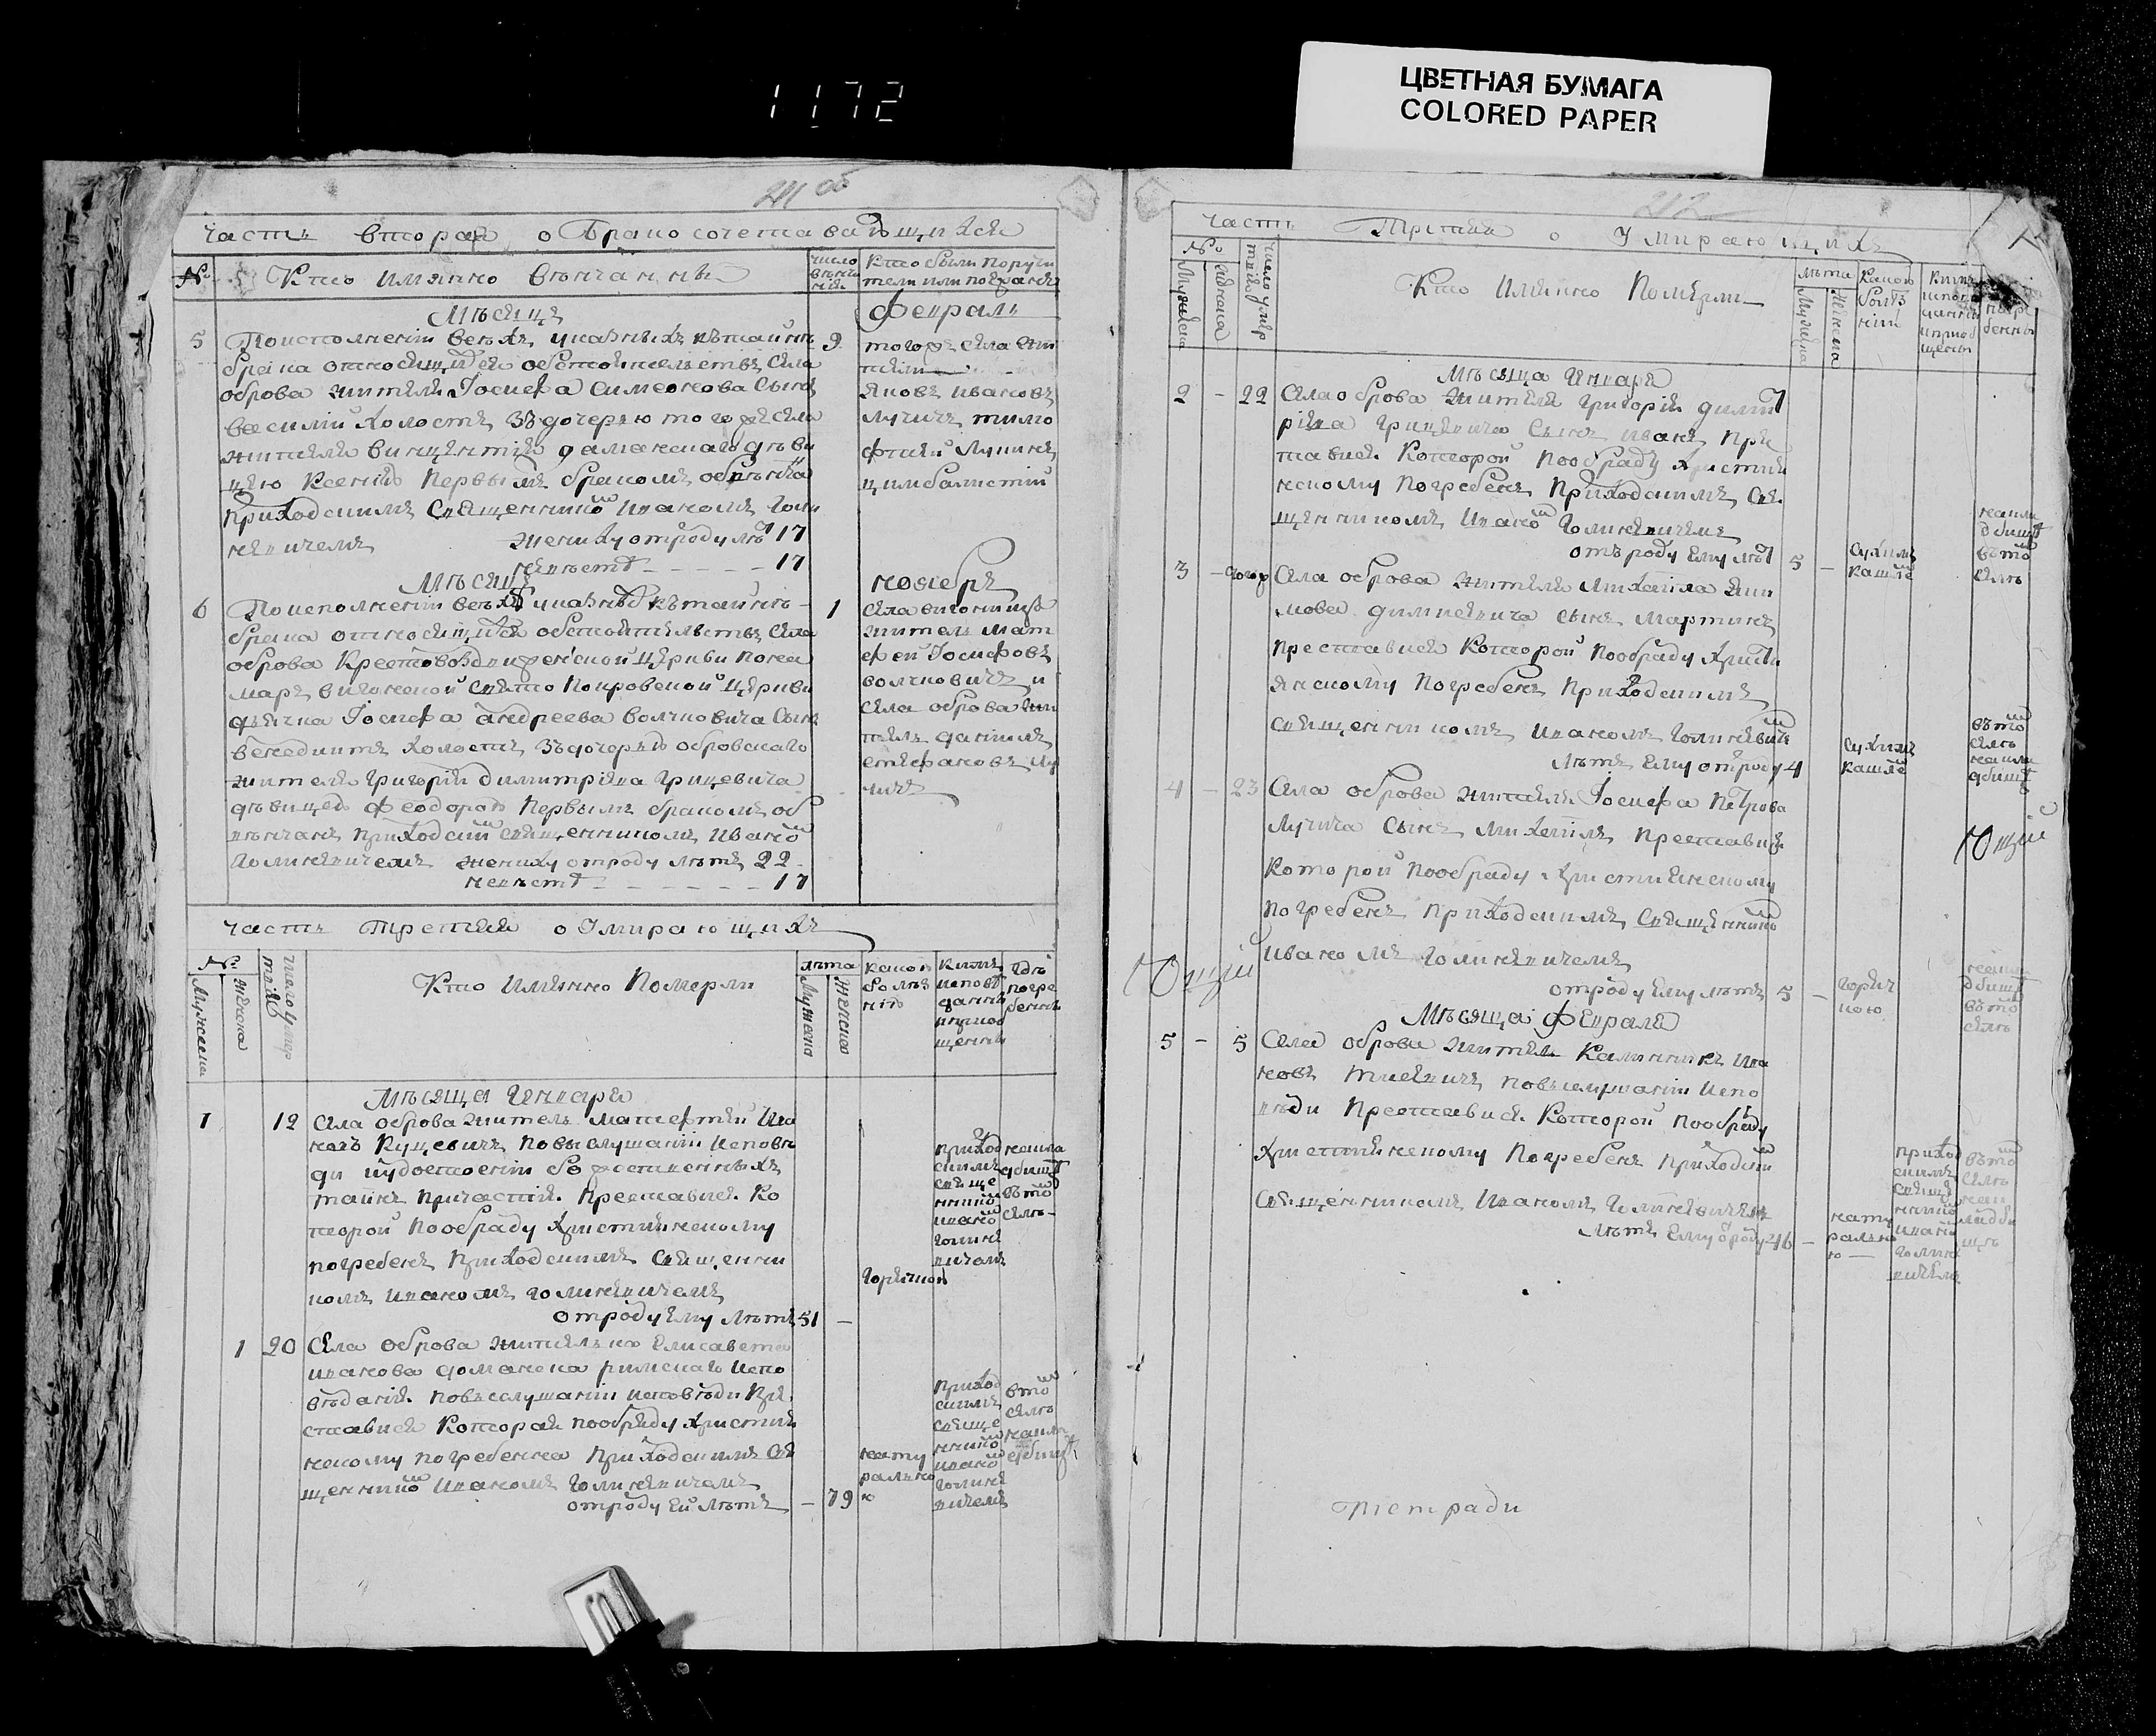 1172
ЦВЕТНАЯ БУМАГА
COLORED PAPER
241 об
Часть вторая о Бракосочетавающихся
№
Кто имянно венчанны
число венча ния
Кто были поручи
тели или поезжанѣ
Мѣсяца
февраль
5 По исполненіи всѣхъ указныхъ къ тайнѣ 9
брака относящихся обстоятельствъ села
оброва жителя Іосифа Симеонова сынъ
василій холостъ зъ дочерью того же села
жителя викентія доманскаго дѣви
цею Ксеніею первымъ бракомъ обвѣнча
приходскимъ священникомъ иваномъ голи
невичемъ жениху отроду лѣтъ 17
невѣстѣ - - - - - 17
того же села жи
тели
яковъ ивановъ
лучичъ, тимо
фтей лукинъ
цимбалистій
Мѣсяца
ноябрь
6 По исполненіи всѣхъ указныхъ къ тайнѣ 1
брака относящихся обстоятельствъ села
оброва Крестовоздвиженской церкви понома
марь вигонской свято покровской церкви
дьячка Іосифа андреева волчковича сынъ
бенедиктъ холостъ зъ дочерью обровскаго
жителя григорія димитріева грицевича
дѣвицею феодорою первымъ бракомъ об
вѣнчанъ приходским священникомъ иваном
голиневичемъ жениху отроду лѣтъ 22
невѣстѣ - - - - - - 17
села вигонищъ
житель мат
фей Іосифовъ
волчковичъ и
села оброва жи
тель даніилъ
стефановъ лу
чичъ
часть Третяя о Умирающихъ
№
Мужеска
женска
число умер твія
Кто имянно Померли
лѣта
Мужеска
женска
какою
болѣз
нію
Кѣмъ
исповѣ
данны
и приоб
щенны
гдѣ
погре
бенны
Мѣсяца генваря
1 12 села оброва житель матефтей ива
новъ куцевичъ, по выслушаніи исповѣ
ди и удостоеніи божественныхъ
тайнъ причастія. преставися. ко
торой по обряду христіянскому
погребенъ приходскимъ священни
комъ иваномъ голиневичемъ
отроду ему лѣтъ 51 —
горячкою
приход
скимъ
свяще
нником
иваном
голине
вичемъ
на кла
дбищѣ
въ том
селѣ —
1 20 села оброва жителька елисавета
иванова доманска римскаго испо
вѣданія. по выслушаніи исповѣди пре
ставися которая по обряду христіян
скому погребенна приходскимъ свя
щенником иваномъ голиневичемъ
отроду ей лѣтъ — 79
нату
рально
ю
приход
скимъ
свяще
нником
иваном
голине
вичемъ
в том
селѣ
на кла
дбищѣ
212
часть Третяя о Умирающихъ
№
Мужеска
женска
число умер твія
Кто имянно Померли
лѣта
Мужеска
женска
какою
болѣз
нію
Кѣмъ
испо
данны
и приоб
щены
погре
бенны
Мѣсяца генваря
2 - 22 села оброва жителя григорія дими
ріева грицевича сынъ иванъ пре
тависе. которой по обряду христия
нскому погребенъ приходскимъ свя
щенникомъ иваном голиневичемъ
отъ роду ему лѣт 5 —
сухимъ
кашле
на кла
дбищѣ
въ том
селѣ
3 - села оброва жителя михаила яки
мова димисевича сынъ мартинъ
преставися которой по обряду христи
янскому погребенъ приходскимъ
священникомъ иваномъ голиневичем
лѣтъ ему отроду 4
сухимъ
кашле
въ том
селѣ
на кла
дбищѣ
4 - 23 села оброва жителя Іосифа петрова
лучича сынъ михаилъ преставися
которой по обряду християнскому
погребенъ приходскимъ священником
иваномъ голиневичемъ
отроду ему лѣтъ 5 —
горяч
кою
на кла
дбищѣ
въ том
селѣ
Мѣсяца февраля
5 - 5 села оброва житель калинникъ ива
новъ по выслушаніи испо
вѣди преставися. которой по обряду
христіянскому погребенъ приходским
священникомъ иваномъ голиневичемъ
лѣтъ ему отроду 46 —
нату
рально
ю —
приход
скимъ
свяще
нником
ивано
голине
вичемъ
въ том
селѣ
на к
ладби
щѣ
тетради